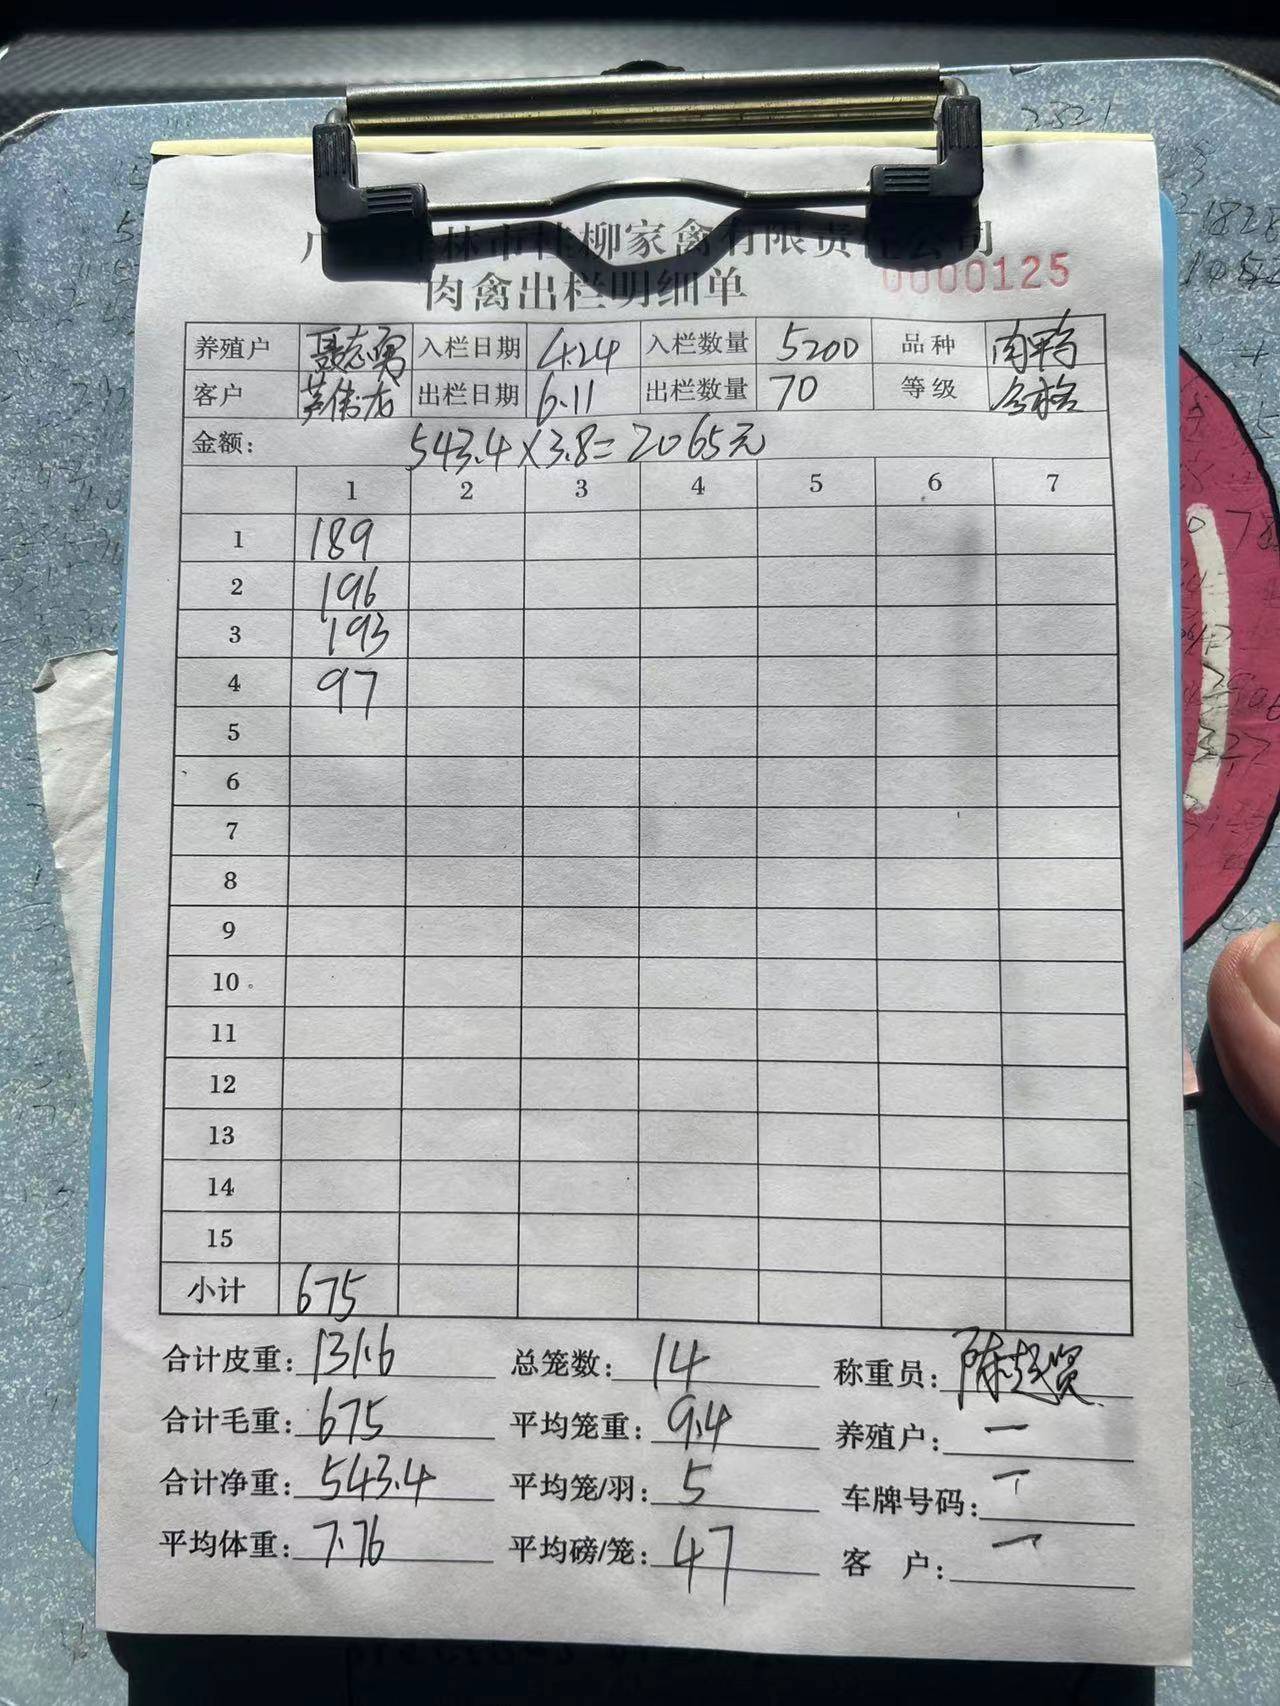 林市桂柳家禽有限责任公司
肉禽出栏明细单
0000125
养殖户 聂志勇 入栏日期 4.24 入栏数量 5200 品种 肉鸭
客户 出栏日期 6.11 出栏数量 70 等级 合格
金额: 543.4×3.8=2065元
1 2 3 4 5 6 7
1 189
2 196
3 193
4 97
5
6
7
8
9
10
11
12
13
14
15
小计 675
合计皮重: 131.6 总笼数: 14 称重员: 陈超贤
合计毛重: 675 平均笼重: 9.4 养殖户: 一
合计净重: 543.4 平均笼/羽: 5 车牌号码: 一
平均体重: 7.76 平均磅/笼: 47 客 户: 一